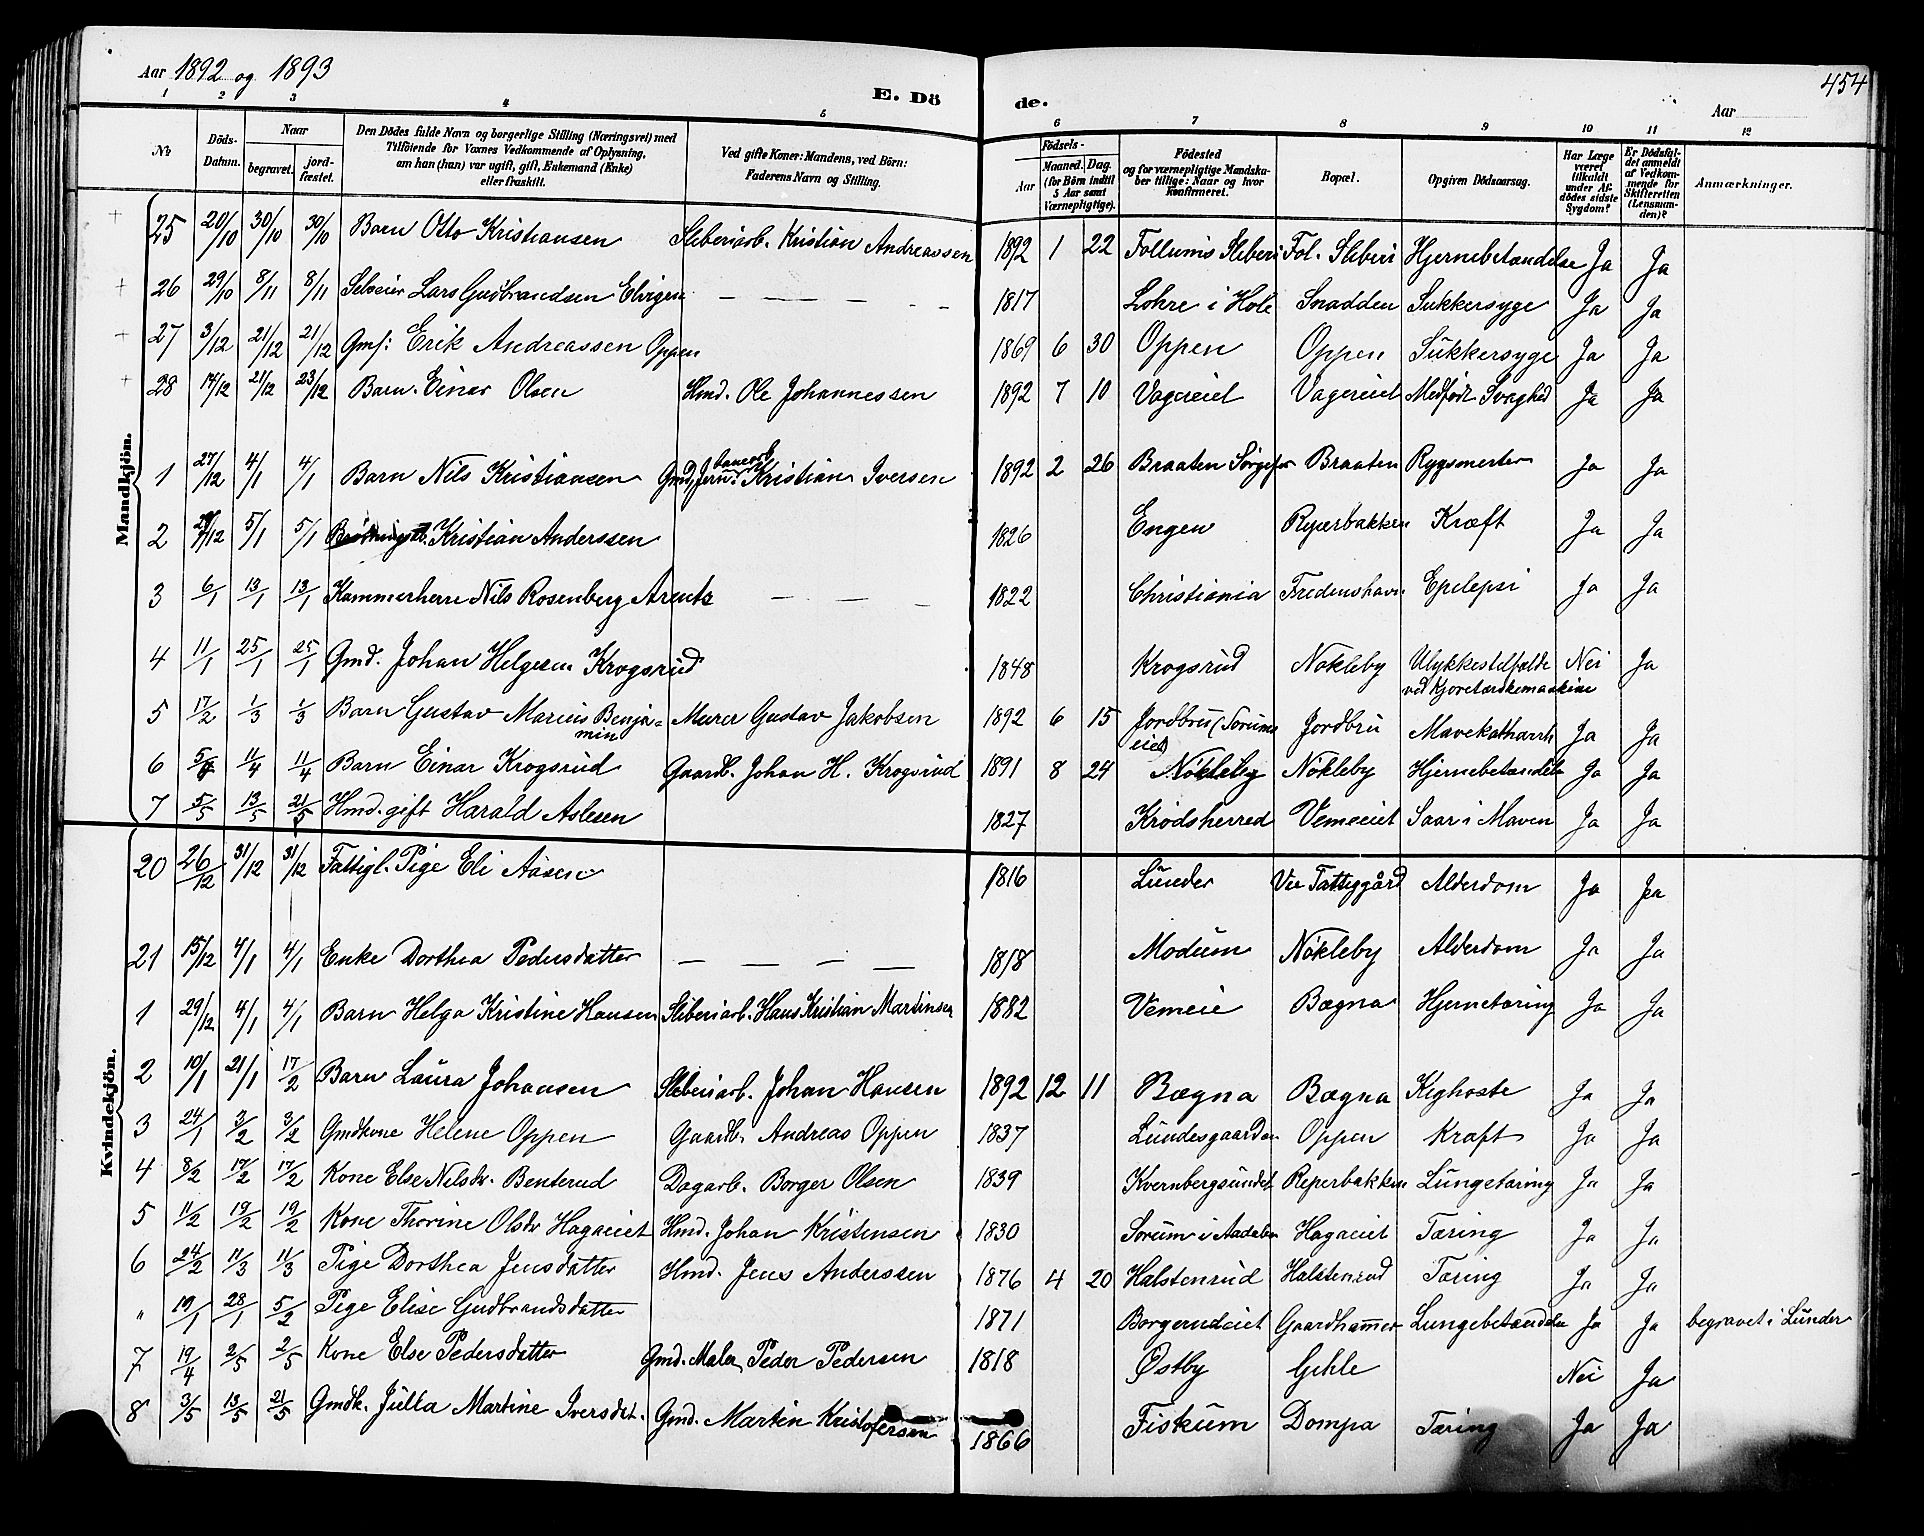 Aar 1892 og 1893
E. Dö de.
454
Aar
1 2 3 4 5 6 7 8 9 10 11 12
No
Döds-Datum.
Naar
begravet.
jord-fæstet.
Den Dödes fulde Navn og borgerlige Stilling (Næringsvei) med
Tilföiende for Voxnes Vedkommende af Oplysning,
om han (hun) var ugift, gift, Enkemand (Enke)
eller fraskilt.
Ved gifte Koner: Mandens, ved Börn:
Faderens Navn og Stilling.
Födsels-
Aar
Maaned. Dag.
(for Börn indtil
5 Aar samt
Værnepligtige).
Födested
og for værnepligtige Mandska-
ber tillige: Naar og hvor
konfirmeret.
Bopæl.
Opgiven Dödsaarsag.
Har Læge
været
tilkaldt
under Af-
dödes sidste
Sygdom?
Er Dödsfal-
det anmeldt
af Vedkom-
mende for
Skifteretten
(Lensman-
den)?
Anmærkninger.
Mandkjön.
25 20/10 30/10 30/10 Barn Otto Kristiansen Sliberiarb. Kristian Andreassen 1892 1 22 Follums Sliberi Fol. Sliberi Hjernebetændelse Ja Ja
26 29/10 8/11 8/11 Selveier Lars Gudbrandsen Elvigen — — — — 1817 Lohre i Hole Snadden Sukkersyge Ja Ja
27 3/12 21/12 21/12 Gmf: Erik Andreassen Oppen 1869 6 30 Oppen Oppen Sukkersyge Ja Ja
28 14/12 21/12 23/12 Barn Einar Olsen Hmd. Ole Johannessen 1892 7 10 Vagereiet Vagereiet Medfødt Svaghed Ja Ja
1 27/12 4/1 4/1 Barn Nils Kristiansen Gmd, Jernbanearb. Kristian Iversen 1892 2 26 Braaten Braaten Ja Ja
2 5/1 5/1 Kristian Anderssen 1826 Engen Kræft Ja Ja
3 6/1 13/1 13/1 Kammerherre Nils Rosenberg Arentz — — — 1822 Christiania Fredenshavn Epelepsi Ja Ja
4 11/1 25/1 25/1 Gmd. Johan Helgesen Krogsrud 1848 Krogsrud Nøkleby Ulykkestilfælde Nei Ja
ved Kjøretærskemaskine
5 17/2 1/3 1/3 Barn Gustav Marius Benja= Murer Gustav Jakobsen 1892 6 15 Jordbru (Sorums Jordbru Mavekatharrh Ja Ja
min eiet)
6 11/4 11/4 Barn Einar Krogsrud Gaardb. Johan H. Krogsrud 1891 8 24 Nøkleby Nøkleby Hjernebetændelse Ja Ja
7 5/5 13/5 21/5 Hmd. gift Harald Aslesen 1827 Krødsherred Vemeeiet Saar i Maven Ja Ja
Kvindekjön.
20 26/12 31/12 31/12 Fattigl. Pige Eli Aasen 1816 Lunder Ve Fattiggård Alderdom Ja Ja
21 15/12 4/1 4/1 Enke Dorthea Pedersdatter — — — — 1818 Modum Nøkleby Alderdom Ja Ja
1 29/12 4/1 4/1 Barn Helga Kristine Hansen Sliberiarb. Hans Kristian Martinsen 1882 Vemeie Bægna Hjernetæring Ja Ja
2 10/1 21/1 17/2 Barn Laura Johansen Sliberiarb. Johan Hansen 1892 12 11 Bægna Bægna Kighoste Ja Ja
3 24/1 3/2 3/2 Gmdkone Helene Oppen Gaardb. Andreas Oppen 1837 Lundesgaarden Oppen Kræft Ja Ja
4 8/2 17/2 17/2 Kone Else Nilsdr. Benterud Dagarb. Borger Olsen 1839 Kvernbergsundet Reperbakken Lungetæring Ja Ja
5 11/2 19/2 19/2 Kone Thorine Olsdr Hagaeiet Hmd. Johan Kristensen 1830 Sorum i Aadalen Hagaeiet Tæring Ja Ja
6 24/2 11/3 11/3 Pige Dorthea Jensdatter Hmd. Jens Anderssen 1876 4 20 Halstenrud Halstenrud Tæring Ja Ja
„ 19/1 28/1 5/2 Pige Elise Gudbrandsdatter 1871 Borgerudeiet Gaardhammer Lungebetændelse Ja Ja begravet i Lunder
7 19/4 2/5 2/5 Kone Else Pedersdatter Gmd. Maler, Peder Pedersen 1818 Østby Gehle Nei Ja
8 3/5 13/5 21/5 Gmdk. Julla Martine Iversdt. Gmd. Martin Kristofersen 1866 Fiskum Dompa Tæring Ja Ja